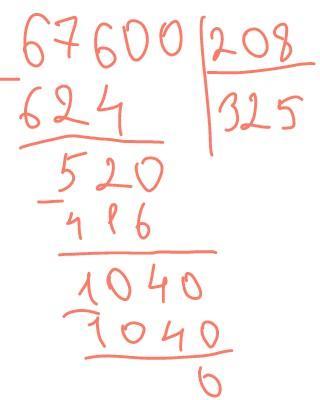 67600 | 208
- 624 | 325
520
- 416
1040
- 1040
0